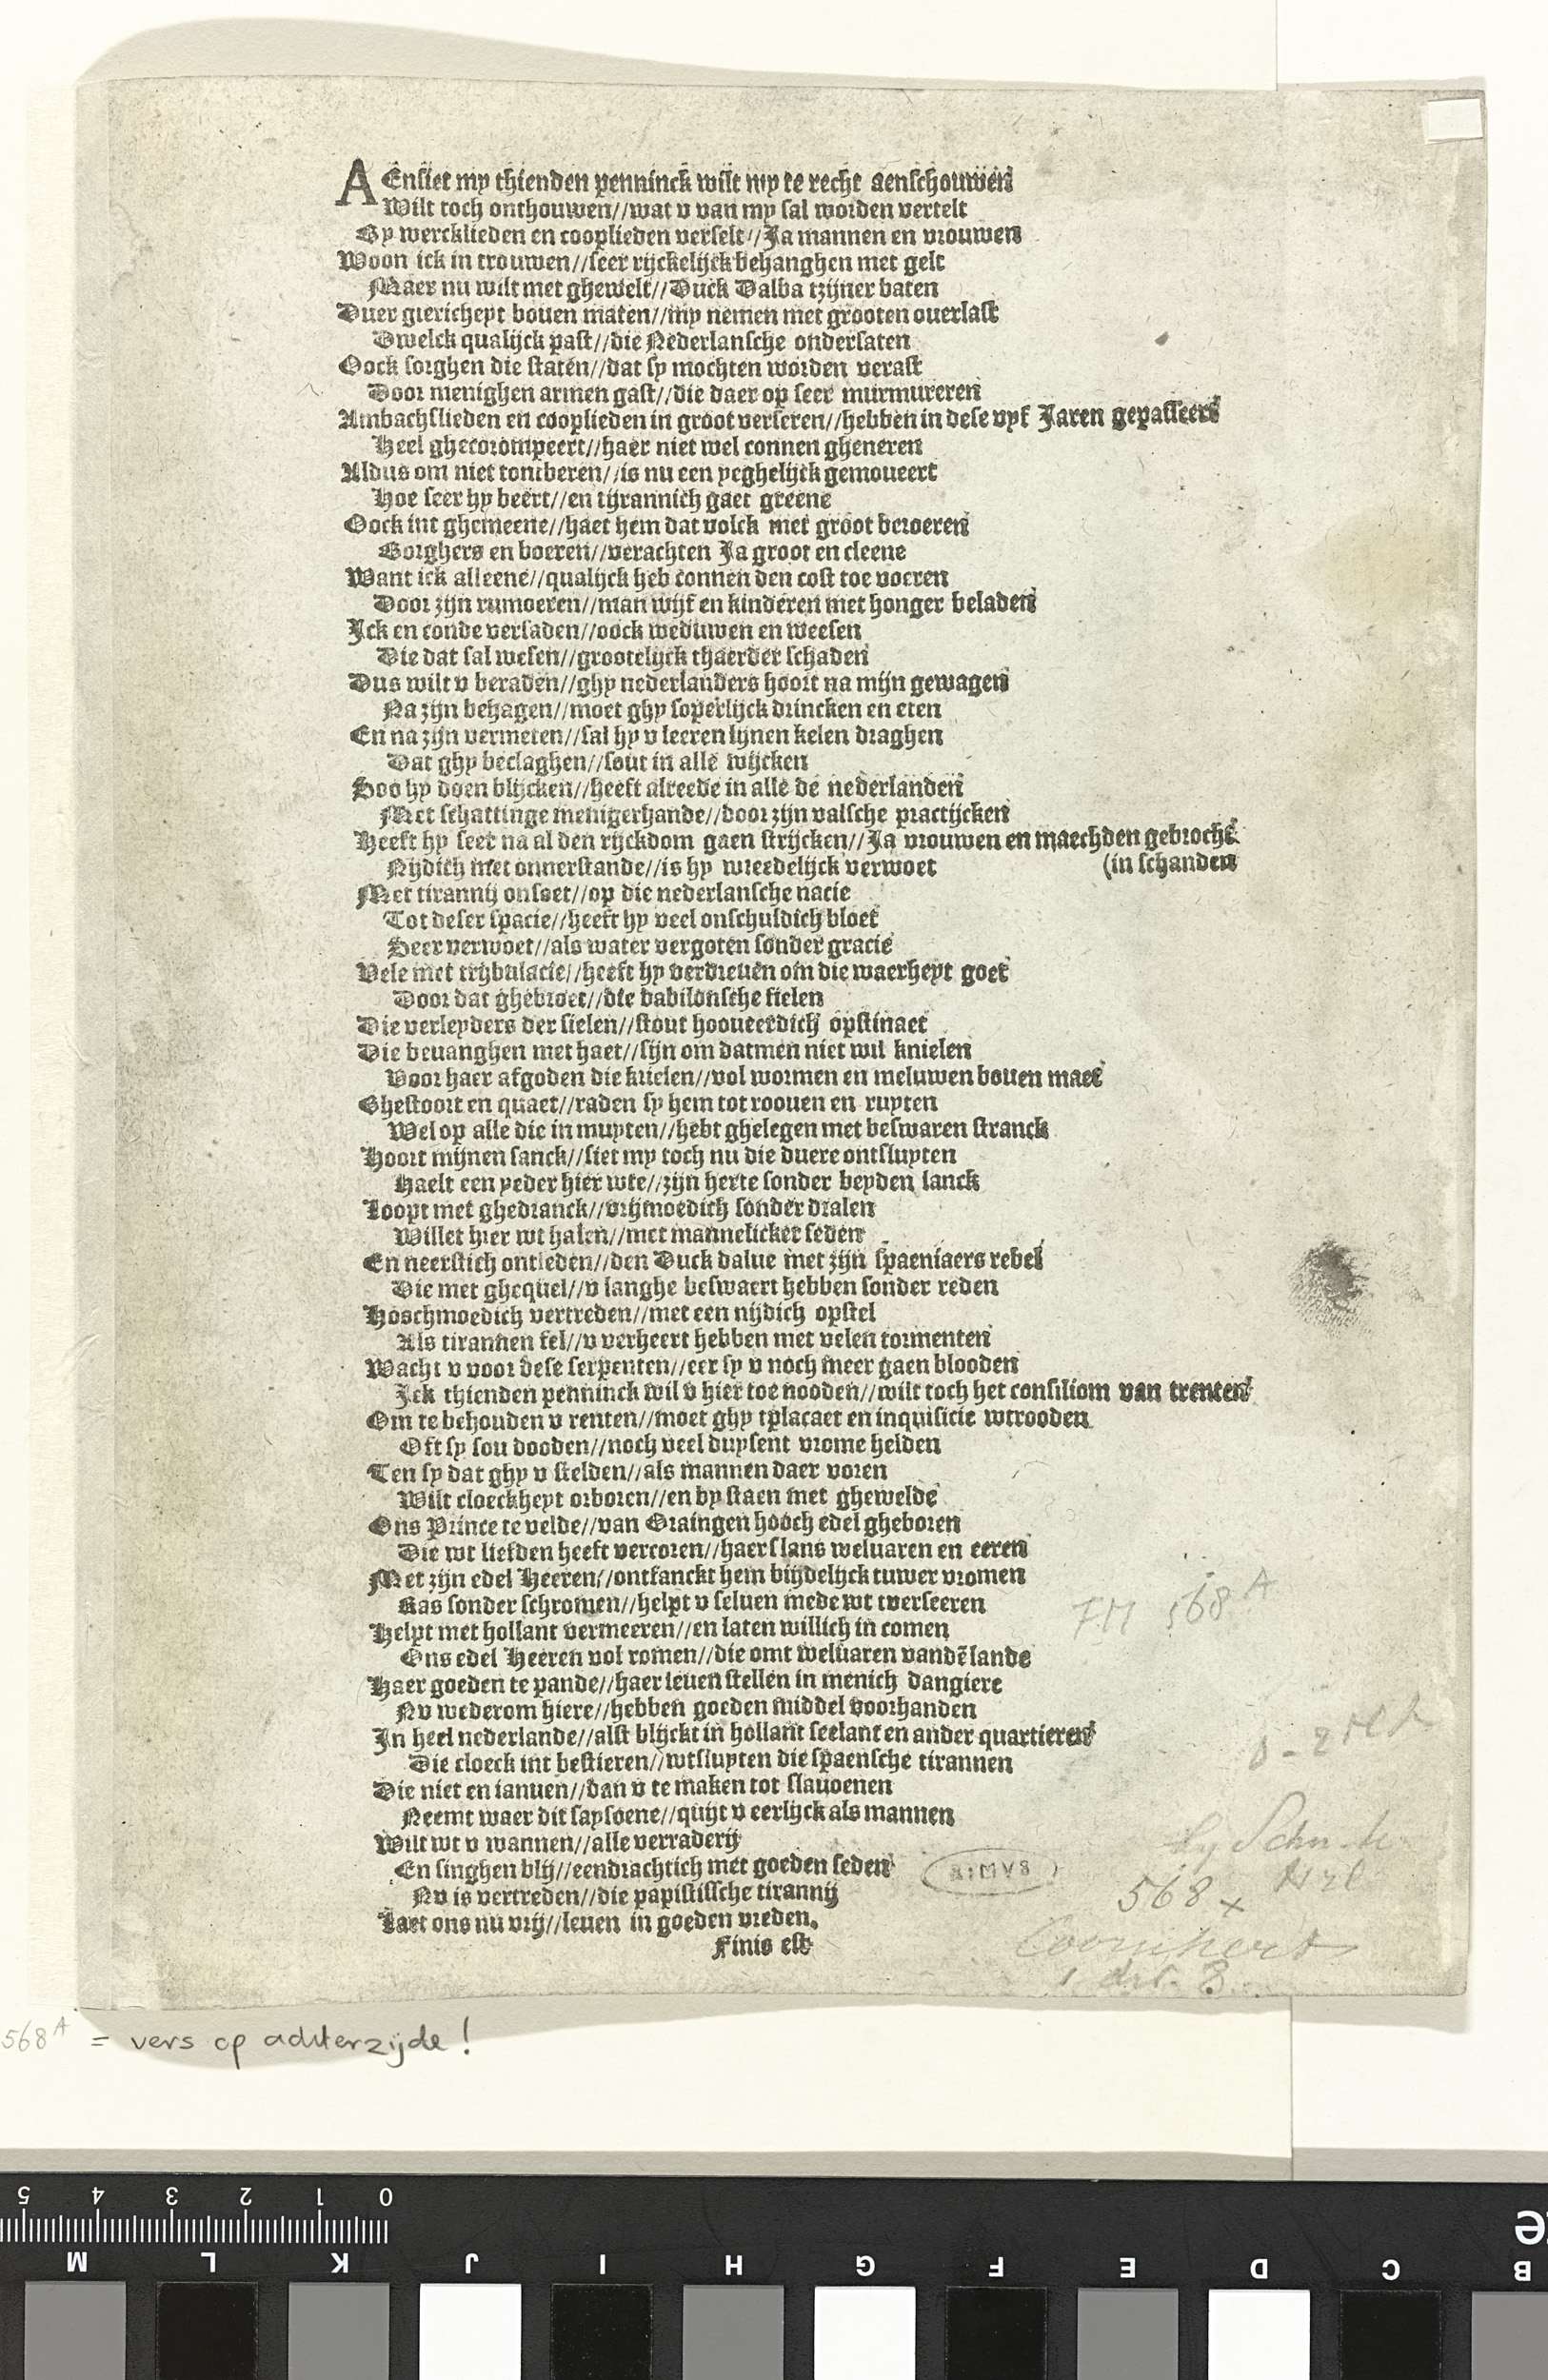 AEnsiet my thienden penninck wilt my te recht aenschouwen
Wilt toch onthouwen//wat v van my sal worden vertelt
Gy wercklieden en cooplieden verselt//Ja mannen en vrouwen
Woon ick in trouwen//seer rijckelijck behanghen met gelt
Maer nu wilt met ghewelt//Duck Dalba tzijner baten
Duer giericheyt bouen maten//my nemen met grooten ouerlast
Dwelck qualijck past//die Nederlansche ondersaten
Oock sorghen die staten//dat sy mochten worden verast
Door menighen armen gast//die daer op seer murmureren
Ambachslieden en cooplieden in groot verseren//hebben in dese vyf Jaren gepasseert
Heel ghecorompeert//haer niet wel connen gheneren
Aldus om niet tontberen//is nu een yeghelijck gemoueert
Hoe seer hy beert//en tijrannich gaet greene
Oock int ghemeene//haet hem dat volck met groot beroeren
Borghers en boeren//verachten Ja groot en cleene
Want ick alleene//qualijck heb connen den cost toe voeren
Door zijn rumoeren//man wijf en kinderen met honger beladen
Ick en conde versaden//oock weduwen en weesen
Die dat sal wesen//grootelijck thaerder schaden
Dus wilt v beraden//ghy nederlanders hoort na mijn gewagen
Na zijn behagen//moet ghy soperlijck drincken en eten
En na zijn vermeten//sal hy v leeren lijnen kelen draghen
Dat ghy beclaghen//sout in alle wijcken
Soo hy doen blijcken//heeft alreede in alle de nederlanden
Met schattinge menigerhande//door zijn valsche practijcken
Heeft hy seer na al den rijckdom gaen strijcken//Ja vrouwen en maechden gebrocht
Nijdich met onnerstande//is hy wreedelijck verwoet (in schanden
Met tirannij onsoet//op die nederlansche nacie
Tot deser spacie//heeft hy veel onschuldich bloet
Seer verwoet//als water vergoten sonder gracie
Vele met trijbulacie//heeft hy verdreuen om die waerheyt goet
Door dat ghebroet//die babilonsche fielen
Die verleyders der sielen//stout hooueerdich opstinaet
Die beuanghen met haet//sijn om datmen niet wil knielen
Voor haer afgoden die krielen//vol wormen en meluwen bouen maet
Ghestoort en quaet//raden sy hem tot roouen en ruyten
Wel op alle die in muyten//hebt ghelegen met beswaren stranck
Hoort mijnen sanck//siet my toch nu die duere ontsluyten
Haelt een yeder hier wte//zijn herte sonder beyden lanck
Loopt met ghedranck//vrijmoedich sonder dralen
Willet hier wt halen//met mannelicker seden
En neerstich ontleden//den Duck dalue met zijn spaeniaers rebel
Die met ghequel//v langhe beswaert hebben sonder reden
Hoochmoedich vertreden//met een nijdich opstel
Als tirannen fel//v verheert hebben met velen tormenten
Wacht v voor dese serpenten//eer sy v noch meer gaen blooden
Ick thienden penninck wil v hier toe nooden//wilt toch het consiliom van trenten
Om te behouden v renten//moet ghy tplacaet en inquisicie wtrooden
Oft sy sou dooden//noch veel duysent vrome helden
Ten sy dat ghy v stelden//als mannen daer voren
Wilt cloeckheyt orboren//en by staen met ghewelde
Ons Prince te velde//van Oraingen hooch edel gheboren
Die wt liefden heeft vercoren//haers lans weluaren en eeren
Met zijn edel Heeren//ontfanckt hem blijdelijck tuwer vromen
Ras sonder schromen//helpt v seluen mede wt tverseeren
Helpt met hollant vermeeren//en laten willich in comen
Ons edel Heeren vol romen//die omt weluaren vandē lande
Haer goeden te pande//haer leuen stellen in menich dangiere
Nv wederom hiere//hebben goeden middel voorhanden
In heel nederlande//alst blijckt in hollant seelant en ander quartieren
Die cloeck int bestieren//wtsluyten die spaensche tirannen
Die niet en ianuen//dan v te maken tot slauoenen
Neemt waer dit saysoene//quijt v eerlijck als mannen
Wilt wt v wannen//alle verraderij
En singhen blij//eendrachtich met goeden seden
Nv is vertreden//die papistissche tirannij
Laet ons nu vrij//leuen in goeden vreden.
Finis est
FM 568 A
568 x
Coornhert
568 A = vers op achterzijde!
5 4 3 2 1 0
M L K J I H G F E D C B